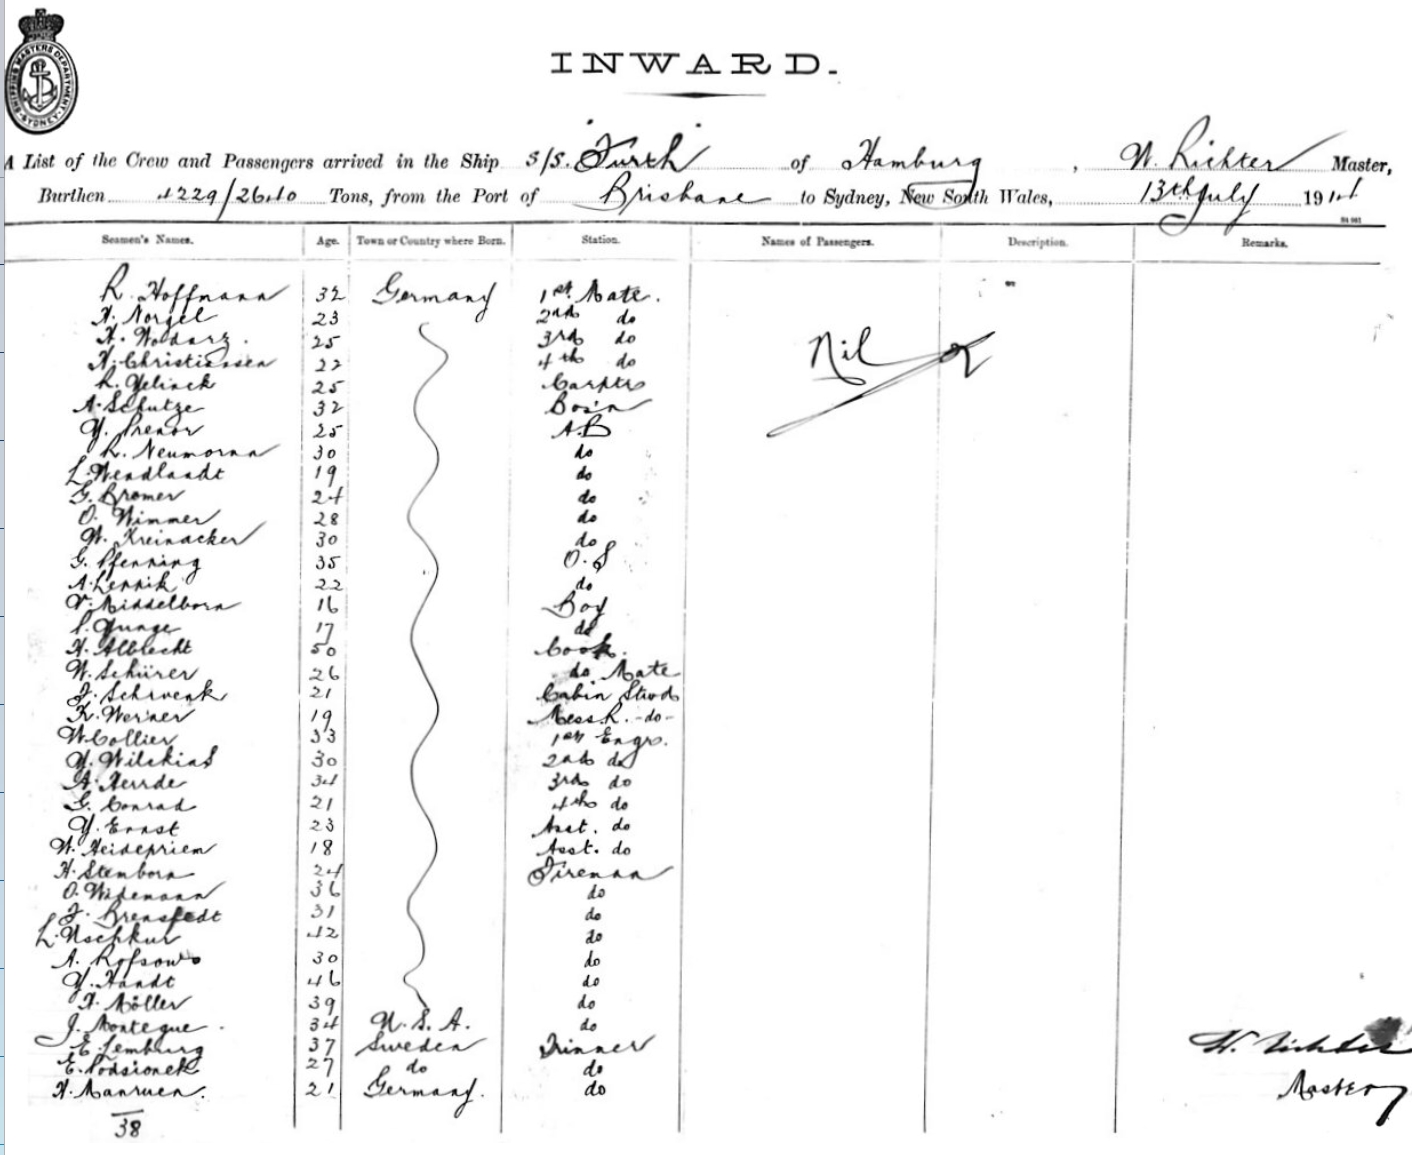 SHIPPING MASTERS DEPARTMENT SYDNEY
INWARD.
A List of the Crew and Passengers arrived in the Ship S/S. Furth of Hamburg, W. Richter Master,
Burthen 4229/2640 Tons, from the Port of Brisbane to Sydney, New South Wales, 13th July 1911
Seamen's Names. Age. Town or Country where Born. Station. Names of Passengers. Description. Remarks.
R. Hoffmann 32 Germany 1st Mate.
H. Norgel 23 2nd do
H. Wodarz. 25 3rd do
N. Christiansen 22 4th do
R. Yelinek 25 Carptr
Nil
A. Schutze 32 Bos'n
Y. Prenor 25 A.B
R. Neumann 30 do
L. Wendlandt 19 do
G. Bromer 24 do
O. Wimmer 28 do
W. Kreinacker 30 do
G. Pfenning 35 O.S
A. Lennik 22 do
V. Middelborn 16 Boy
P. Yunge 17 do
H. Albrecht 50 Cook.
W. Schürer 26 do Mate
J. Schwenk 21 Cabin Stwd
K. Werner 19 Mess R. -do-
W. Collier 33 1st Engr.
Y. 30 2nd do
A. 34 3rd do
G. Conrad 21 4th do
Y. Ernst 23 Asst. do
W. Heideprien 18 Asst. do
H. Stemborn 24 Fireman
O. Widemann 36 do
J. Brensfedt 31 do
L. 42 do
A. 30 do
Y. Handt 46 do
H. Möller 39 do
J. Montegue 34 U.S.A. do
E. Lemburg 37 Sweden Trimmer
E. 27 do do
H. 21 Germany. do
W. Richter
Master
38